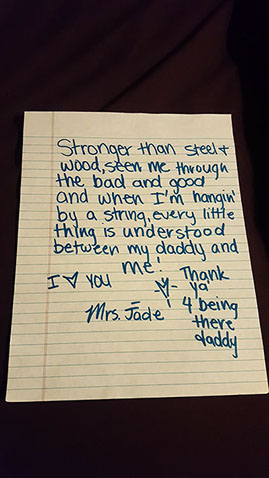 Stronger than steel +
wood, seen me through
the bad and good
and when I'm hangin'
by a string, every little
thing is understood
between my daddy and
me!
I ♡ YOU
Thank
ya'
Mrs. Jade
4 being
there
daddy